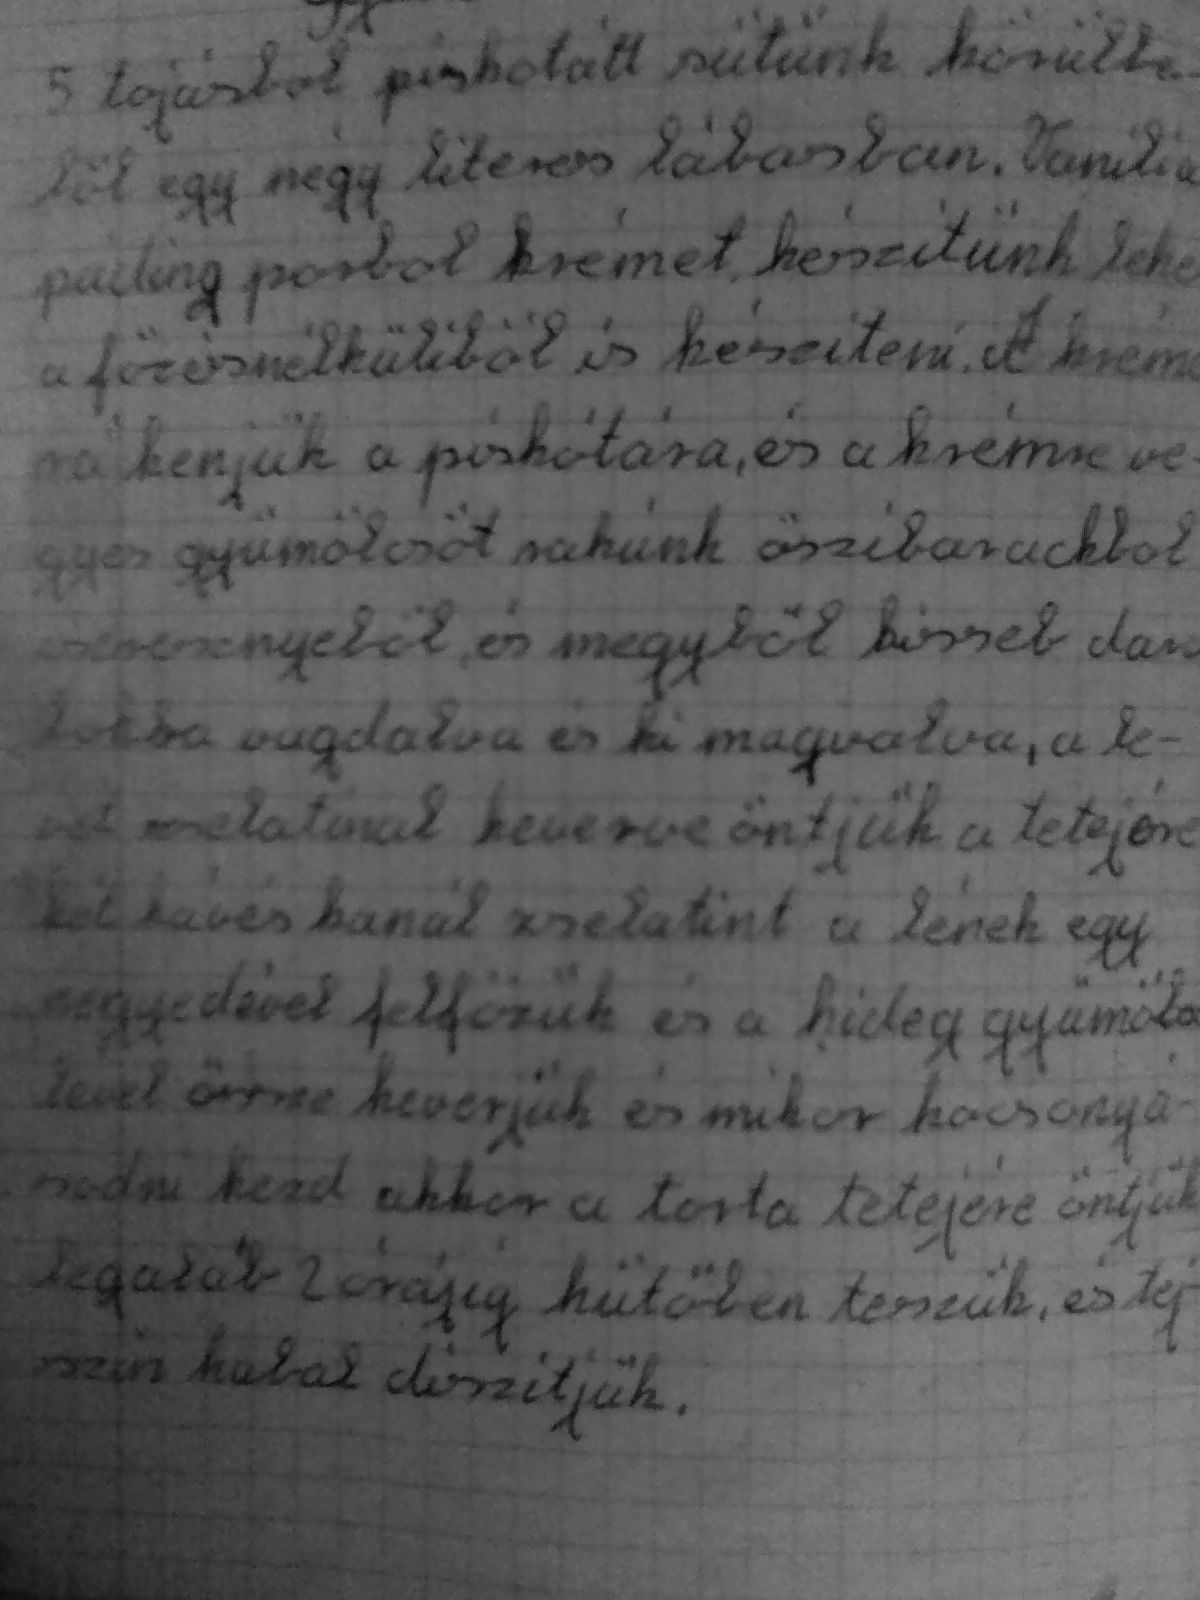 5 tojásbol piskotátt sütünk körülbe-
löl egy négy literes lábasban. Vanilia
puding porbol krémet készitünk lehe
a főzésnélküliből is késziteni. A krémé
rá kenjük a piskótára, és a krémre ve-
gyes gyümölcsöt rakunk öszibarackbol
cseresznyeböl, és megyböl kisseb dara
bokba vagdalva és ki magvalva, a le-
vét zselatinal keverve öntjük a tetejére
két kávés kanál zselatint a lének egy
negyedével felfözük és a hideg gyümölcs
levél össze keverjük és mikor kocsonyá-
sodni kezd akkor a torta tetejére öntjük
legaláb 2 óráig hütöben teszük, és tej-
szin habal diszitjük.